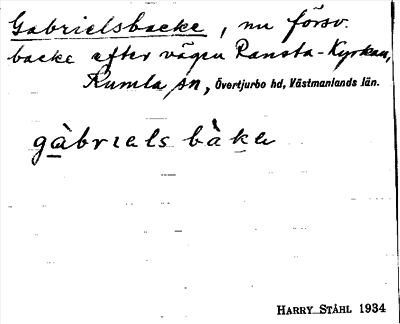 Gabrielsbacke, nu försv.
backe efter vägen Ransta-Kyrkan,
Kumla sn, Övertjurbo hd, Västmanlands län.
gàbriels bàka
HARRY STÅHL 1934